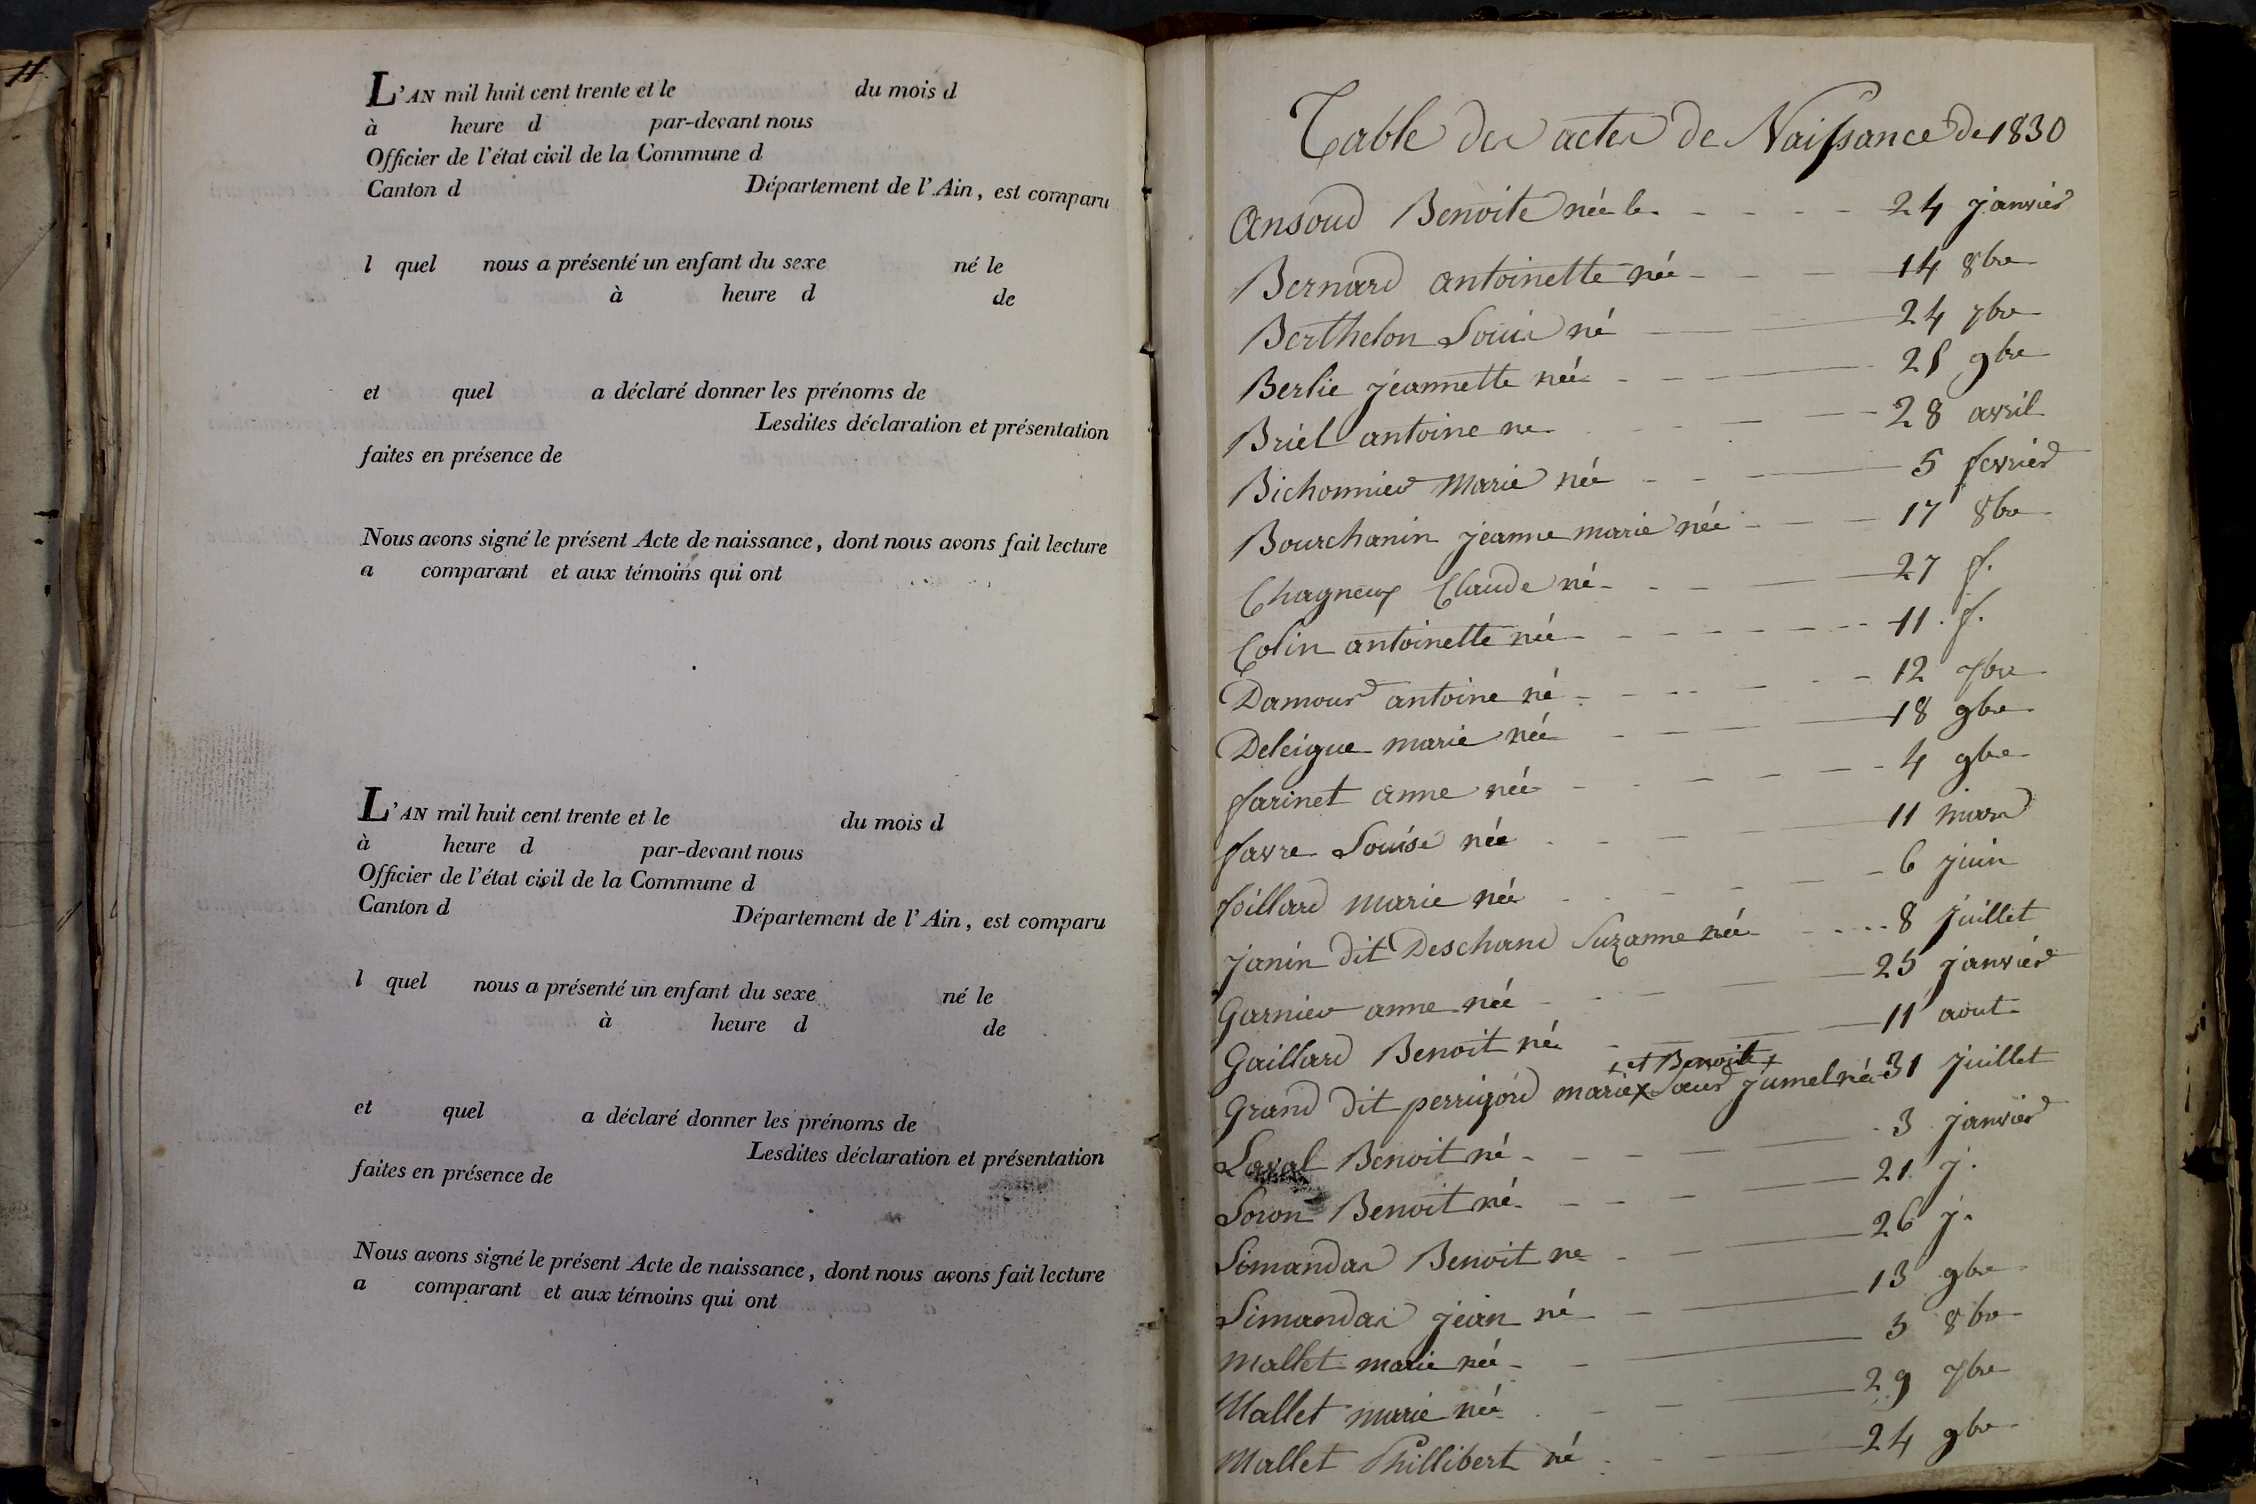 11
L'AN mil huit cent trente et le du mois d
à heure d par-devant nous
Officier de l'état civil de la Commune d
Canton d Département de l'Ain, est comparu
l quel nous a présenté un enfant du sexe né le
à heure d de
et quel a déclaré donner les prénoms de
Lesdites déclaration et présentation
faites en présence de
Nous avons signé le présent Acte de naissance, dont nous avons fait lecture
a comparant et aux témoins qui ont
L'AN mil huit cent trente et le du mois d
à heure d par-devant nous
Officier de l'état civil de la Commune d
Canton d Département de l'Ain, est comparu
l quel nous a présenté un enfant du sexe né le
à heure d de
et quel a déclaré donner les prénoms de
Lesdites déclaration et présentation
faites en présence de
Nous avons signé le présent Acte de naissance, dont nous avons fait lecture
a comparant et aux témoins qui ont
Table des actes de Naissance de 1830
Ansoud Benoite née le 24 janvier
Bernard antoinette née 14 8bre
Berthelon Louis né 24 7bre
Berlie jeannette née 25 9bre
Briel antoine ne 28 avril
Bichonnier Marie née 5 fevrier
Bourchanin jeanne marie née 17 8bre
Chagneux Claude né 27 f.
Colin antoinette née 11. f.
Damour antoine né 12 7bre
Deleigue marie née 18 9bre
farinet anne née 4 9bre
favre Louise née 11 mars
foillard marie née 6 juin
janin dit Deschans Suzanne née 8 juillet
Garnier anne née 25 janvier
Gaillard Benoit né 11 aout
+ et Benoite +
Grand dit perrigord marie x Sœurs jumel née 31 juillet
Laval Benoit né 3 janvier
Loron Benoit né 21 j.
Limandas Benoit ne 26 j.
Limandas jean né 13 9bre
Mallet marie née 5 8bre
Mallet marie née 29 7bre
Mallet Phillibert né 24 9bre